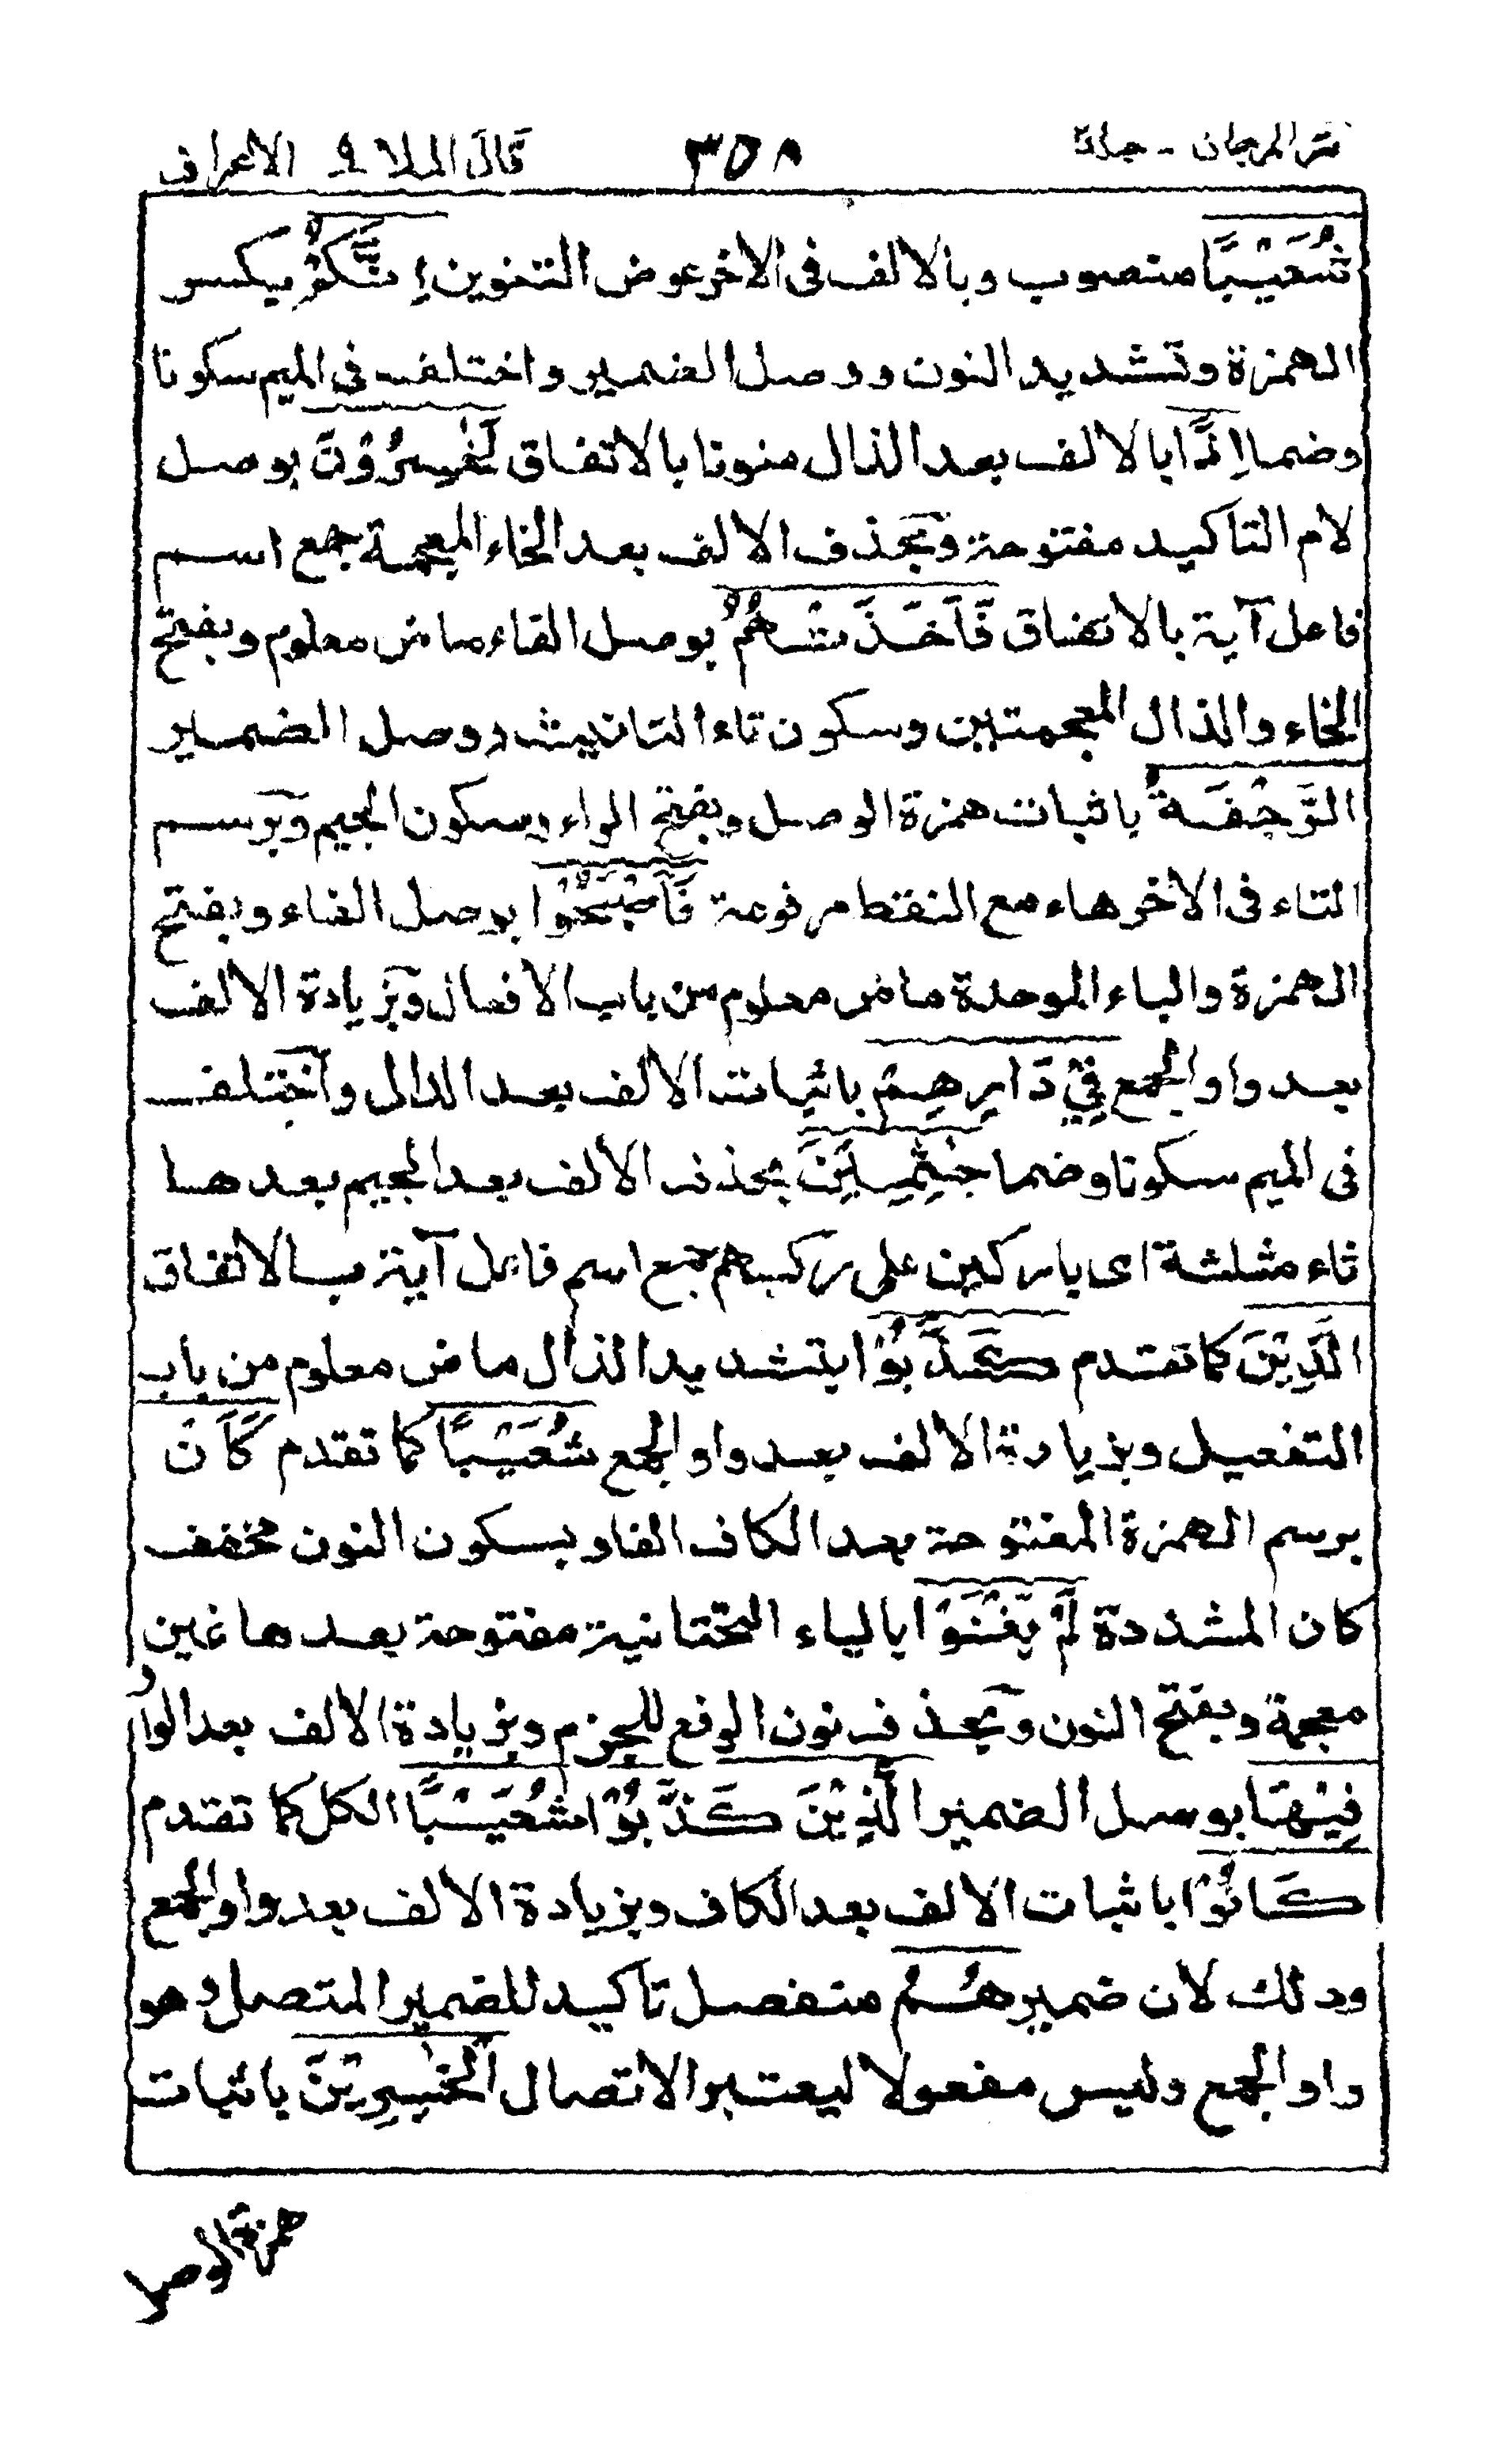 نثر المرجان - جلد٢ ٣٥٨ قال الملا ٩ الاعراف
شُعَيْبًا منصوب وبالالف فى الاخر عوض التنوين إِنَّكُمْ بكسر
الهمزة وتشديد النون ووصل الضمير واختلف فى الميم سكونا
وضما إِذًا بالالف بعد الذال منونا بالاتفاق لَّخٰسِرُوْنَ بوصل
لام التاكيد مفتوحة وبحذف الالف بعد الخاء المعجمة جمع اسم
فاعل آية بالاتفاق فَاَخَذَتْهُمُ بوصل الفاء ماض معلوم وبفتح
الخاء والذال المعجمتين وسكون تاء التانيث ووصل الضمير
الرَّجْفَةُ باثبات همزة الوصل وبفتح الراء وسكون الجيم وبرسم
التاء فى الاخر هاء مع النقط مرفوعة فَاَصْبَحُوْا بوصل الفاء وبفتح
الهمزة والباء الموحدة ماض معلوم من باب الافعال وبزيادة الالف
بعد واو الجمع فِيْ دَارِهِمْ باثبات الالف بعد الدال واختلف
فى الميم سكونا وضما جٰثِمِيْنَ بحذف الالف بعد الجيم بعدها
ثاء مثلثة اى باركين على ركبهم جمع اسم فاعل آية بالاتفاق
الَّذِيْنَ كما تقدم كَذَّبُوْا بتشديد الذال ماض معلوم من باب
التفعيل وبزيادة الالف بعد واو الجمع شُعَيْبًا كما تقدم كَاَنْ
برسم الهمزة المفتوحة بعد الكاف الفا وبسكون النون مخفف
كان المشددة لَّمْ يَغْنَوْا بالياء التحتانية مفتوحة بعدها غين
معجمة وبفتح النون وبحذف نون الرفع للجزم وبزيادة الالف بعد الواو
فِيْهَا بوصل الضمير الَّذِيْنَ كَذَّبُوْا شُعَيْبًا الكل كما تقدم
كَانُوْا باثبات الالف بعد الكاف وبزيادة الالف بعد واو الجمع
وذلك لان ضمير هُمُ منفصل تاكيد للضمير المتصل وهو
واو الجمع وليس مفعولا ليعتبر الاتصال الْخٰسِرِيْنَ باثبات
همزة الوصل